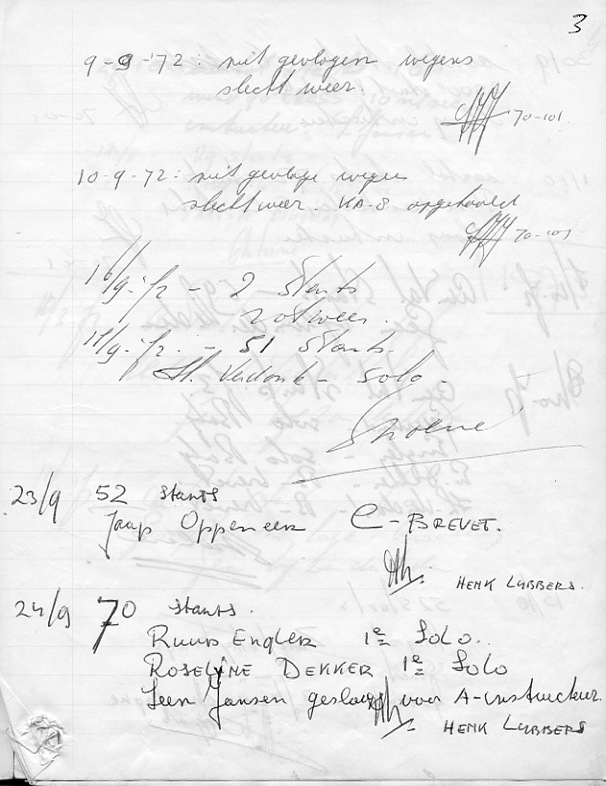 3
9-9-'72: niet gevlogen wegens
slecht weer.
70-101.
10-9-72: niet gevloge wegen
slecht weer. KA-8 opgehaald
70-101
16/9-'72 - 2 Starts
rotweer.
17/9-'72. - 51 Starts.
Verdonk - Solo.
23/9 52 starts
Jaap Oppeneer C-BREVET.
HENK LUBBERS.
24/9 70 starts.
RUUD ENGLER 1e Solo.
ROSELYNE DEKKER 1e Solo
Leen Jansen geslaagd voor A-instructeur.
HENK LUBBERS